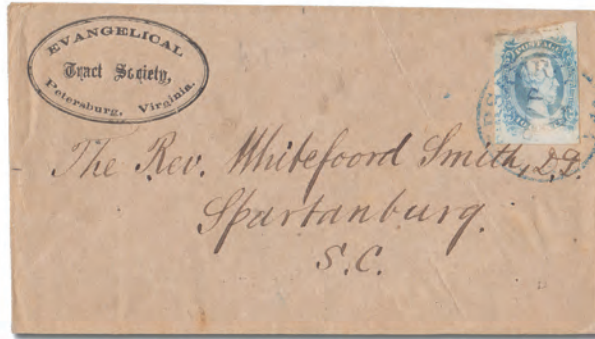 EVANGELICAL
Tract Society,
Petersburg, Virginia.
POSTAGE
The Rev. Whitefoord Smith, D.D.
Spartanburg.
S.C.